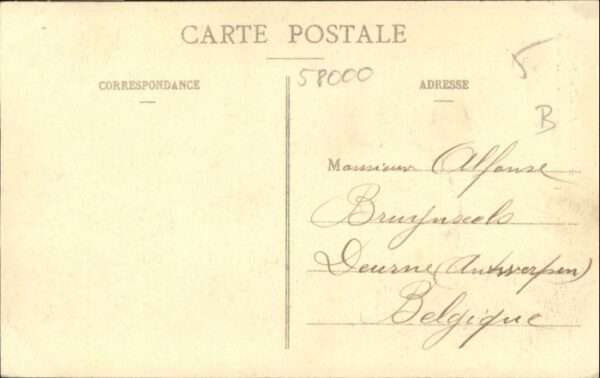 CARTE POSTALE
CORRESPONDANCE
58000
ADRESSE
5
B
Monsieur Alfonse
Bruijnseels
Deurne (Antwerpen)
Belgique